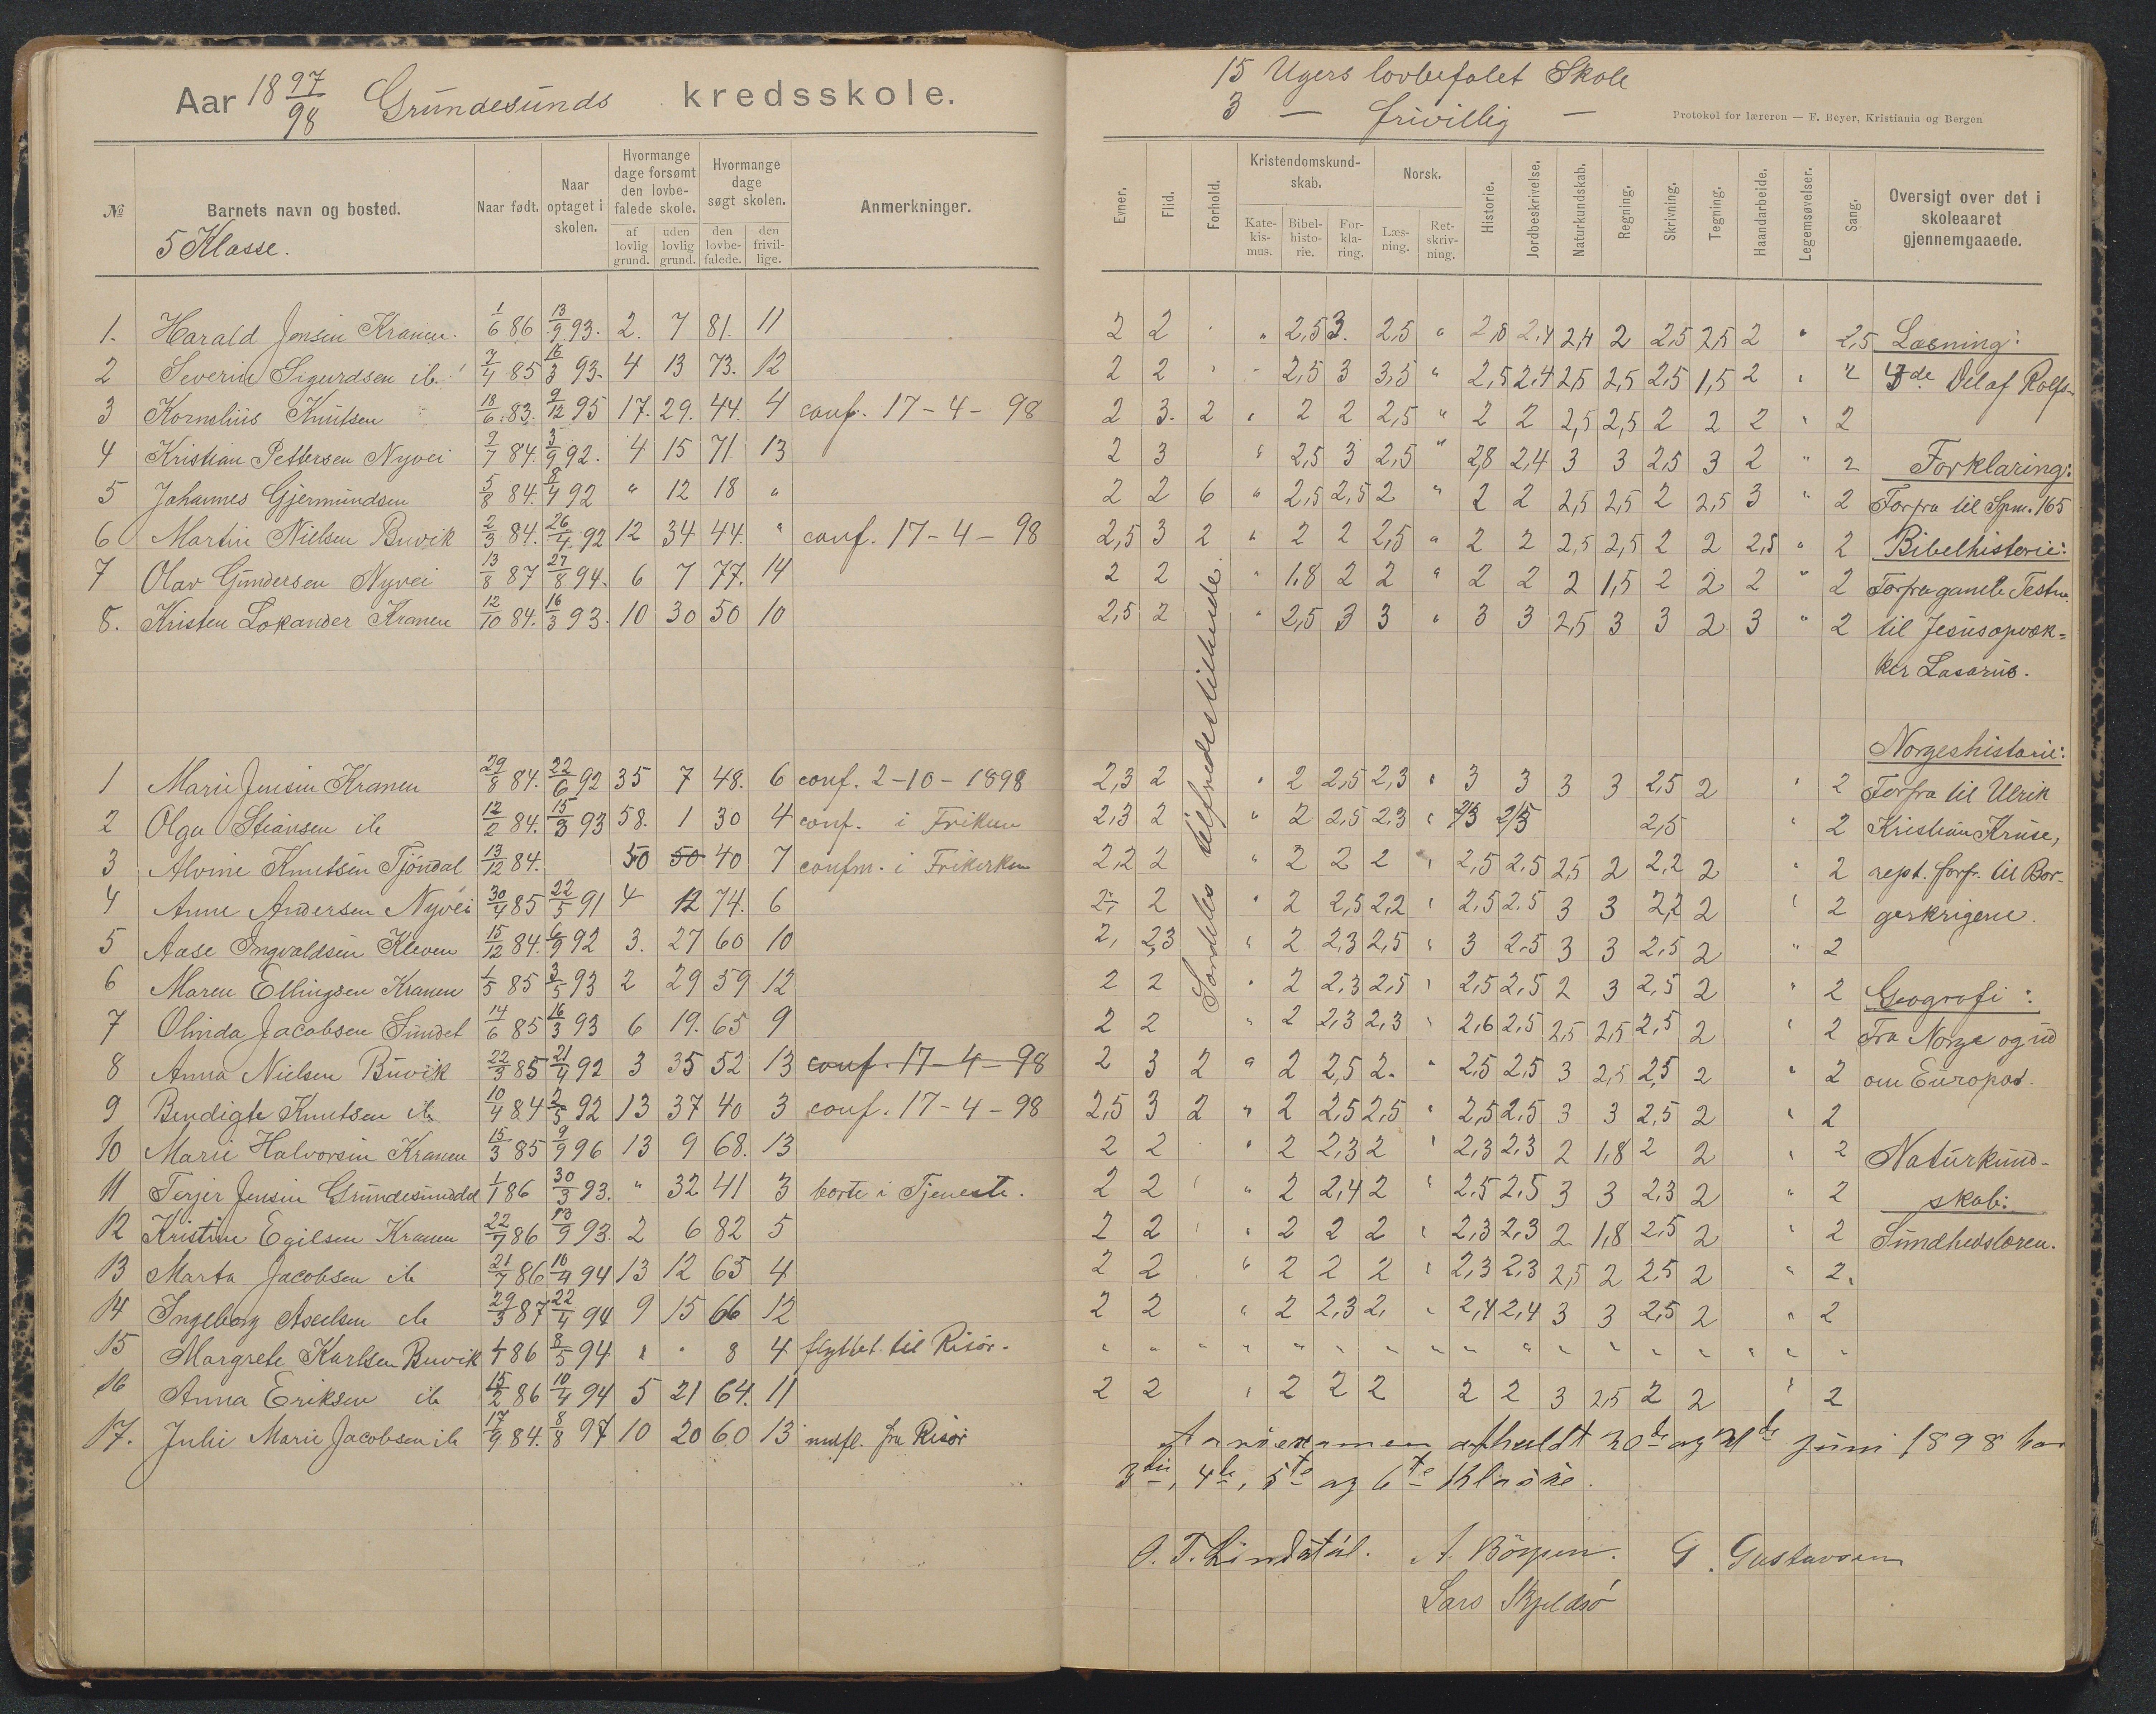 Aar 18 97/98 Grundesunds kredsskole.
№ Barnets navn og bosted. Naar født. Naar optaget i skolen. Hvormange dage forsømt den lovbefalede skole. Hvormange dage søgt skolen. Anmerkninger.
af lovlig grund. uden lovlig grund. den lovbefalede. den frivillige.
5 Klasse.
1. Harald Jensen Kranen. 1/6 86 13/9 93. 2. 7 81. 11
2 Severin Sigurdsen ib. 7/4 85 16/3 93. 4 13 73. 12
3 Kornelius Knutsen 18/6 83. 9/12 95 17. 29. 44. 4 conf. 17-4-98
4 Kristian Pettersen Nyvei 9/7 84. 3/9 92. 4 15 71. 13
5 Johannes Gjermundsen 5/8 84. 8/4 92 " 12 18 "
6 Martin Nielsen Buvik 2/3 84. 26/4 92 12 34 44. " conf. 17-4-98
7 Olav Gundersen Nyvei 13/8 87 27/8 94. 6 7 77. 14
8. Kristen Lokander Kranen 12/10 84. 16/3 93. 10 30 50 10
1 Marie Jensen Kranen 29/8 84. 22/6 92 35 7 48. 6 conf. 2-10-1898
2 Olga Stiansen ib 12/2 84. 15/3 93 58. 1 30 4 conf. i Frikirken
3 Alvine Knutsen Tjöndal 13/12 84. 50 50 40 7 confm. i Frikirken
4 Anne Andersen Nyvei 30/4 85 22/5 91 4 12 74. 6
5 Aase Ingvaldsen Kleven 15/12 84. 6/9 92 3. 27 60 10
6 Maren Ellingsen Kranen 1/5 85 3/5 93 2 29 59 12
7 Olinda Jacobsen Sundet 14/6 85 16/3 93 6 19. 65 9
8 Anna Nielsen Buvik 22/3 85 21/4 92 3 35 52 13 conf. 17-4-98
9 Bendigte Knutsen ib 10/4 84 2/5 92 13 37 40 3 conf. 17-4-98
10 Marie Halvorsen Kranen 15/3 85 9/9 96 13 9 68. 13
11 Terjer Jensen Grundesunddal 1/1 86 30/3 93. " 32 41 3 borte i Tjeneste.
12 Kristine Egilsen Kranen 22/7 86 13/9 93. 2 6 82 5
13 Marta Jacobsen ib 21/7 86 10/4 94 13 12 65 4
14 Ingeborg Axelsen ib 29/3 87 22/4 94 9 15 66 12
15 Margrete Karlsen Buvik 1/1 86 8/5 94 " " 8 4 flyttet til Risör.
16 Anna Eriksen ib 15/2 86 10/4 94 5 21 64. 11
17. Julie Marie Jacobsen ib 17/9 84. 8/8 97 10 20 60 13 indfl. fra Risör
15 Ugers lovbefalet Skole
3 — frivillig —
Protokol for læreren — F. Beyer, Kristiania og Bergen
Evner. Flid. Forhold. Kristendomskundskab. Norsk. Historie. Jordbeskrivelse. Naturkundskab. Regning. Skrivning. Tegning. Haandarbeide. Legemsøvelser. Sang. Oversigt over det i skoleaaret gjennemgaaede.
Katekismus. Bibelhistorie. Forklaring. Læsning. Retskrivning.
2 2 " 2,5 3. 2,5 " 2,8 2,4 2,4 2 2,5 2,5 2 " 2,5 Læsning:
2 2 " 2,5 3 3,5 " 2,5 2,4 2,5 2,5 2,5 1,5 2 " 2 de Del af Rolfs-
2 3. 2 " 2 2 2,5 " 2 2 2,5 2,5 2 2 2 " 2
2 3 " 2,5 3 2,5 " 2,8 2,4 3 3 2,5 3 2 " 2 Forklaring:
2 2 6 " 2,5 2,5 2 " 2 2 2,5 2,5 2 2,5 3 " 2 Forfra til Spm. 165
2,5 3 2 " 2 2 2,5 " 2 2 2,5 2,5 2 2 2,5 " 2 Bibelhistorie:
2 2 " 1,8 2 2 " 2 2 2 1,5 2 2 2 " 2 Forfra gamle Testm.
2,5 2 " 2,5 3 3 " 3 3 2,5 3 3 2 3 " 2 til Jesus opvæk=
ker Lasarus.
Særdeles tilfredsstillende.
Norgeshistorie:
2,3 2 " 2 2,5 2,3 " 3 3 3 3 2,5 2 " 2 Forfra til Ulrik
2,3 2 " 2 2,5 2,3 " 2/3 2/3 2,5 " 2 Kristian Kruse,
2,2 2 " 2 2 2 " 2,5 2,5 2,5 2 2,2 2 " 2 rept. forfr. til Bor-
2, 2 " 2 2,5 2,2 " 2,5 2,5 3 3 2,2 2 " 2 gerkrigene.
2, 2,3 " 2 2,3 2,5 " 3 2,5 3 3 2,5 2 " 2
2 2 " 2 2,3 2,5 " 2,5 2,5 2 3 2,5 2 " 2 Geografi:
2 2 " 2 2,3 2,3 " 2,6 2,5 2,5 2,5 2,5 2 " 2 Fra Norge og ud
2 3 2 " 2 2,5 2. " 2,5 2,5 3 2,5 2,5 2 " 2 om Europas.
2,5 3 2 " 2 2,5 2,5 " 2,5 2,5 3 3 2,5 2 " 2
2 2 " 2 2,3 2 " 2,3 2,3 2 1,8 2 2 " 2 Naturkund-
2 2 " 2 2,4 2 " 2,5 2,5 3 3 2,3 2 " 2 skab:
2 2 " 2 2 2 " 2,3 2,3 2 1,8 2,5 2 " 2 Sundhedslæren.
2 2 " 2 2 2 " 2,3 2,3 2,5 2 2,5 2 " 2.
2 2 " 2 2,3 2, " 2,4 2,4 3 3 2,5 2 " 2
" " " " " " " " " " " " " " " " "
2 2 " 2 2 2 2 2 3 2,5 2 2 " 2
Aarsexamen afholdt 20de og 21de Juni 1898 for
3die, 4de, 5te og 6te Klasse.
O. T. Lindstöl. A. Börresen. G. Gustavsen
Lars Skjeldsö